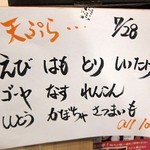 天ぷら… 7/28
えび はも とり いたり
ゴーヤ なす れんこん
しとう かぼちゃ さつまいも
all 10